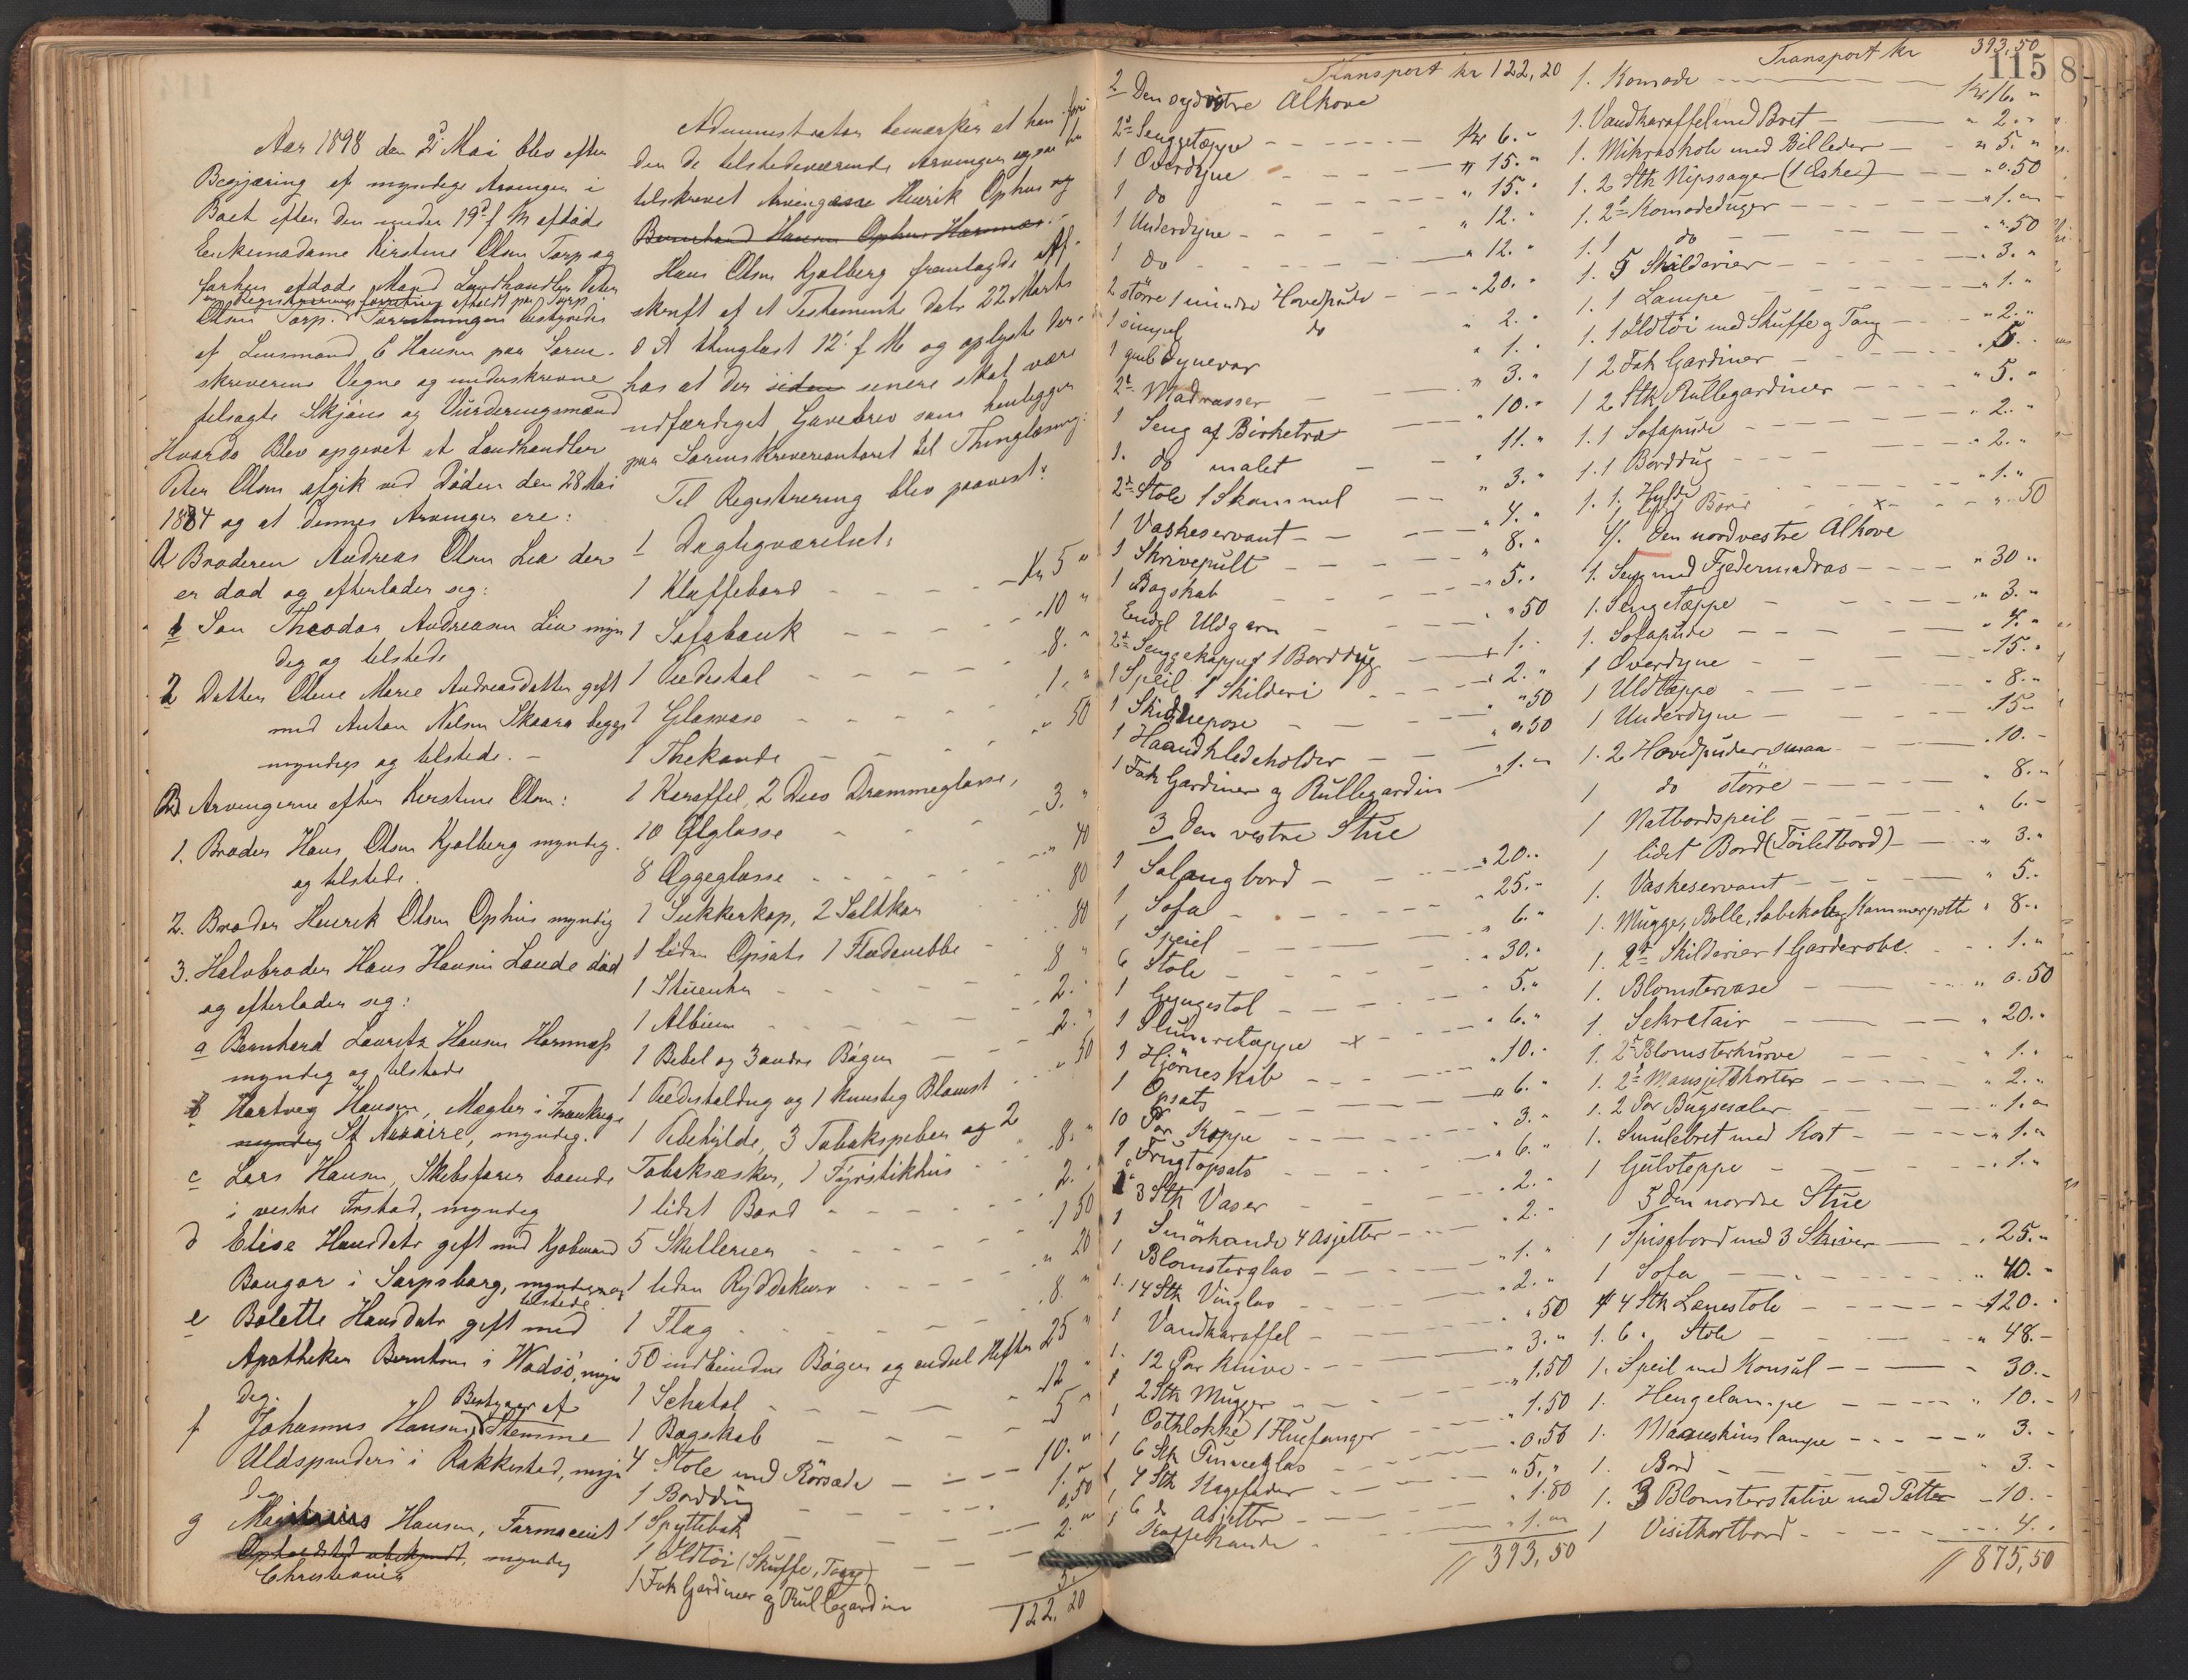 Aar 1898 den 2d Mai blev efter
Begjæring af myndige Arvinger i
Boet efter den under 19d f M afdøde
Enkemadame Kirstine Olsen Torp og
førhen afdøde Mand Landhandler Peter
Registreringsforretning afholdt paa Torp
Olsen Torp. Forretningen bestyredes
af Lensmand C Hansen paa Soren-
skriverens Vegne og underskrevne
tilsagte Skjøns og Vurderingsmænd
Hvorda Blev opgivet at Landhandler
Peter Olsen afgik ved Døden den 28 Mai
1884 og at dennes Arvinger ere:
A Broderen Andreas Olsen Lia der
er død og efterlader sig:
1 Søn Theodor Andreasen Lia myn
dig og tilstede
2 Datter Oline Marie Andreasdatter gift
med Anton Nilsen Skaara begge
myndige og tilstede. -
B Arvingerne efter Kirstine Olsen:
1. Broder Hans Olsen Kjølberg myndig
og tilstede.
2. Broder Henrik Olsen Ophus myndig
3. Halvbroder Hans Hansen Lande død
og efterlader sig:
a Bernhard Lauritz Hansen Hornnæs
myndig og tilstede
b Hartvig Hansen, Mægler i Frankrige
myndig St Nazaire, myndig.
c Lars Hansen, Skibsfører boende
i vestre Frstad, myndig
d Elise Hansdatr gift med Kjøbmand
Bangor i Sarpsborg, myndig og
tilstede
e Bolette Hansdatr gift med
Apotheker Berntsen i Wadsö, myn
dig.
Bestyrer af
f Johannes Hansen, Stemme
Uldspinderi i Rakkestad, myn
dig
g Hansen, Farmaceut
Opholdsted ubekjendt, myndig
Christiania
Administrator bemærker at han foru
den de tilstedeværende Arvinger ogsaa har
tilskrevet Arvingerne Henrik Ophus og
Bernhard Hansen Ophus Hornnæs.-
Hans Olsen Kjølberg fremlagde Af-
skrift af et Testamente datr 22 Marts
d A thinglæst 12' f M og oplyste der-
hos at der siden senere skal være
udfærdiget Gavebrev som henligger
paa Sorenskrivercontoret til Thinglæsning.
Til Registrering blev paavist:
1 Dagligværelset:
1 Klaffebord - - - Kr 5 "
1 Sofabænk - - - 10 "
1 Piedestal - - - 8. "
1 Glasvase - - - 1. "
1 Thekande - - - " 50
1 Karaffel, 2 Dus Drammeglasse,
10 Ølglasse - - 3. "
8 Æggeglasse - - - " 40
1 Sukkerkop, 2 Saltkar 80
1 liden Opsats 1 Flødenebbe - 80
1 Stueuhr - - - 8 "
1 Album - - - 2. "
1 Bibel og 3 andre Bøger - 2. "
1 Piedestaldug og 1 kunstig Blomst " 50
1 Pibehylde, 3 Tobakspiber og 2
Tobaksæsker, 1 Fyrstikhus - 8. "
1 lidet Bord - - - 2. "
5 Skillerier - - - 1 50
1 liden Ryddekurv - - - " 20
1 Flag - - - 8. "
50 indbundne Bøger og endel Hefter 25 "
1 Schatol - - - 12 "
1 Bogskab - - - 5 "
4 Stole med Rörsæde - - - 10. "
1 Borddug - - - 1. "
1 Spyttebak - - - 0,50
1 Ildtöi (Skuffe, Tang) - 2. "
1 Fak Gardiner og Rullegardin 5.
122. 20
Transport kr 122,20
2 Den sydøstre Alkove
2d Sengetæpper - - - Kr 6. "
1 Overdyne - - - " 15. "
1 do - - - " 15. "
1 Underdyne - - - " 12. "
1 do - - - " 12. "
2 större 1 mindre Hovedpude - - " 20. "
1 simpel do " 2. "
1 gml Dynevar " 1. "
2d Madrasser - - " 3. "
1 Seng af Birketræ - " 10. "
1. do malet - - " 11. "
2d Stole 1 Skammel - " 3. "
1 Vaskeservant - - " 4. "
1 Skrivepult - - - " 8. "
1 Bogskab - - - " 5. "
Endel Uldgarn - - - " 50
2d Sengekapper 1 Borddug - 1. "
1 Speil 1 Skilderi - - " 2. "
1 Skidnepose - - - " 50
1 Haandklædeholder - - " 0,50
1 Fak Gardiner og Rullegardin - " 1. "
3 Den vestre Stue
1 Salangbord - - - " 20. "
1 Sofa - - - " 25. "
1 Speiel - - - " 6. "
6 Stole - - - " 30. "
1 Gyngestol - - - " 5. "
1 Slumretæppe - x - - " 6. "
1 Hjørneskab - - - " 10. "
1 Opsats - - - " 6. "
10 Par Kopper - - - " 3. "
1 Frugtopsats - - - " 6. "
3 Stk Vaser - - " 2. "
1 Smörkande 4 Asjetter - - " 2. "
1 Blomsterglas - - - " 1. "
1. 14 Stk Vinglas - - - " 2. "
1 Vandkaraffel - - - " 50
1. 12 Par Knive - - - " 3. "
1 2 Stk Mugger - - - " 1.50
1 Ostklokke 1 Fluefanger - " 1.50
1 6 Stk Punceglas - - - " 0.50
1 4 Stk Kagefader - - - " 5. "
1 6 do Asjetter - - - " 1.50
1 Kaffekande - - " 1. "
393,50
Transport kr 393,50
115
8
1. Komode - - - Kr 16. "
1. Vandkaraffel med Bret - - " 2. "
1. Mikroskob med Billeder - - " 5. "
1. 2 Stk Nipssager (1 Æske) - " 0.50
1. 2d Komodeduger - - - " 1. "
1. 1 do - - - " 50
1. 5 Skilderier - - - " 3. "
1. 1 Lampe - - - " 1. "
1. 1 Ildtöi med Skuffe og Tang - " 2. "
1 2 Fak Gardiner - - - " 5. "
1 2 Stk Rullegardiner - - " 5. "
1. 1 Sofapude - - - " 2. "
1. 1 Borddug - - - " 2. "
1. 1. Hylde - - - " 1. "
1 lidet Bord - - x - " 50
4. Den nordvestre Alkove
1. Seng med Fjedermadras - - - " 30 "
1. Sengetæppe - - - " 3. "
1. Sofapude - - - " 4. "
1 Overdyne - - - " 15. "
1 Uldtæppe - - - " 8. "
1 Underdyne - - - " 15 -
1. 2 Hovedpuder smaa - - " 10. -
1 do större - - - " 8. "
1 Natbordspeil - - - " 6. -
1 lidet Bord (Toiletbord) - - " 3. "
1. Vaskeservant - - - " 5. "
1. Mugge, Bolle, Sæbekop, Kammerpotte " 8. "
1. 2d Skilderier 1 Garderobe. - " 1. "
1. Blomstervase - - - " 0.50
1. Sekretair - - - " 20. "
1. 2d Blomsterkurve - - - " 1. "
1. 2d Mansjetskorter - - - " 2. "
1. 2 Par Buxesæler - - - " 1. "
1. Smulebret med Kost - - - " 1. "
1 Gulvtæppe - - - " 1. "
5 Den nordre Stue
1 Spisebord med 3 Skiver - " 25. "
1 Sofa - - - " 40. "
4 Stk Lænestole - - - 120. "
1. 6 " Stole - - - " 48. -
1. Speil med Konsol - - - 30. -
1. Hengelampe - - - " 10. -
1. Maaneskinslampe - - - " 3. -
1. Bord - - - " 3. -
1. 3 Blomsterstative med Potter - 10. -
1 Visitkortbord - - - 4. "
875,50